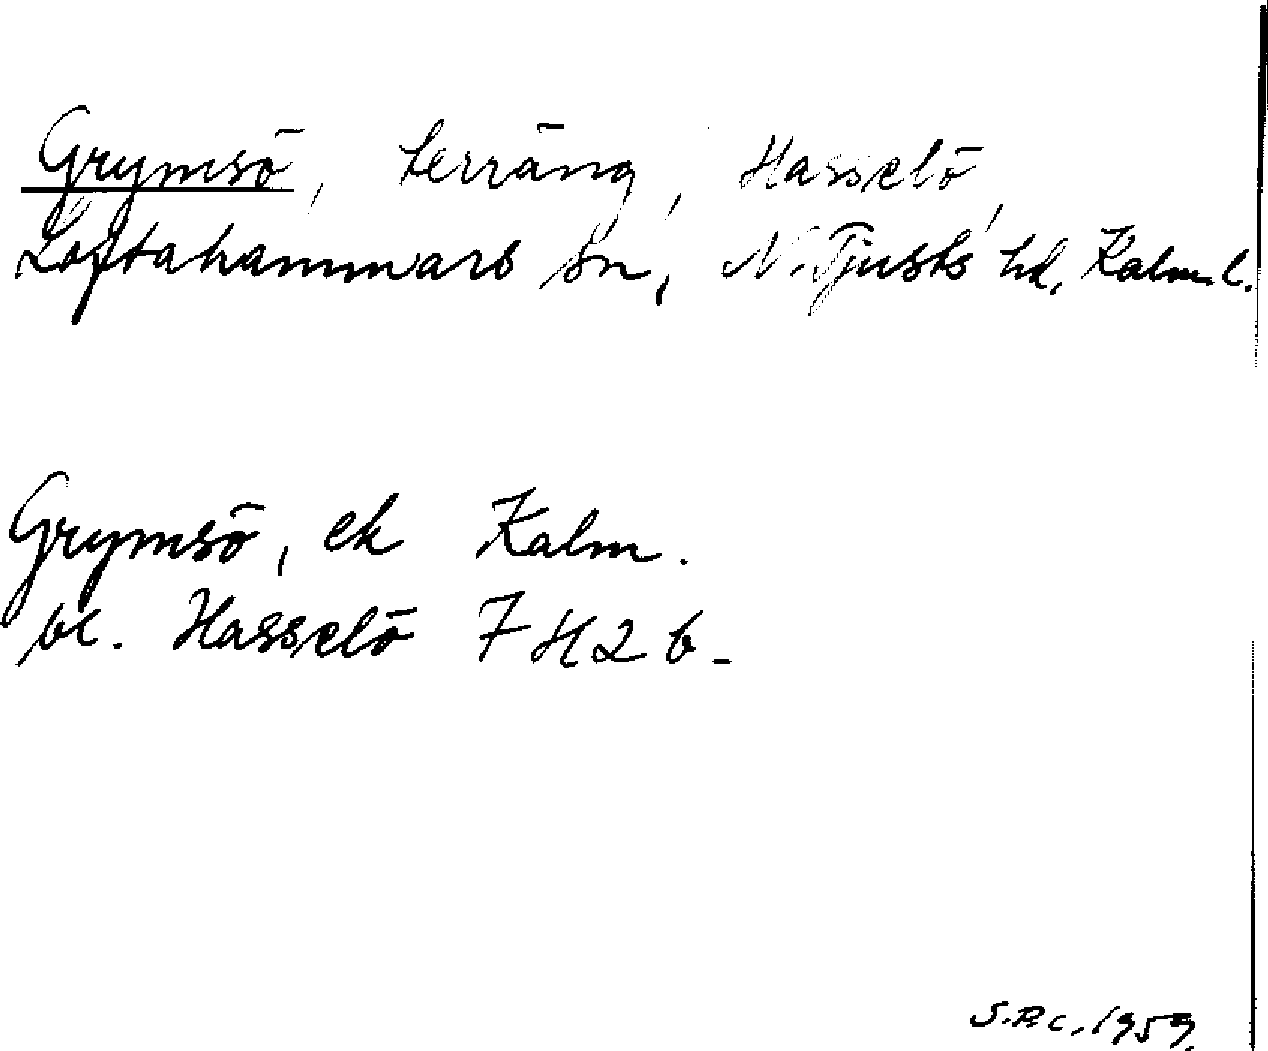 Grymsö, terräng, Hasselö,
Loftahammars sn, N. Tjusts hd, Kalm. l.
Grymsö, ek Kalm.
bl. Hasselö 7 H 2 b.
S.P.C. 1959.